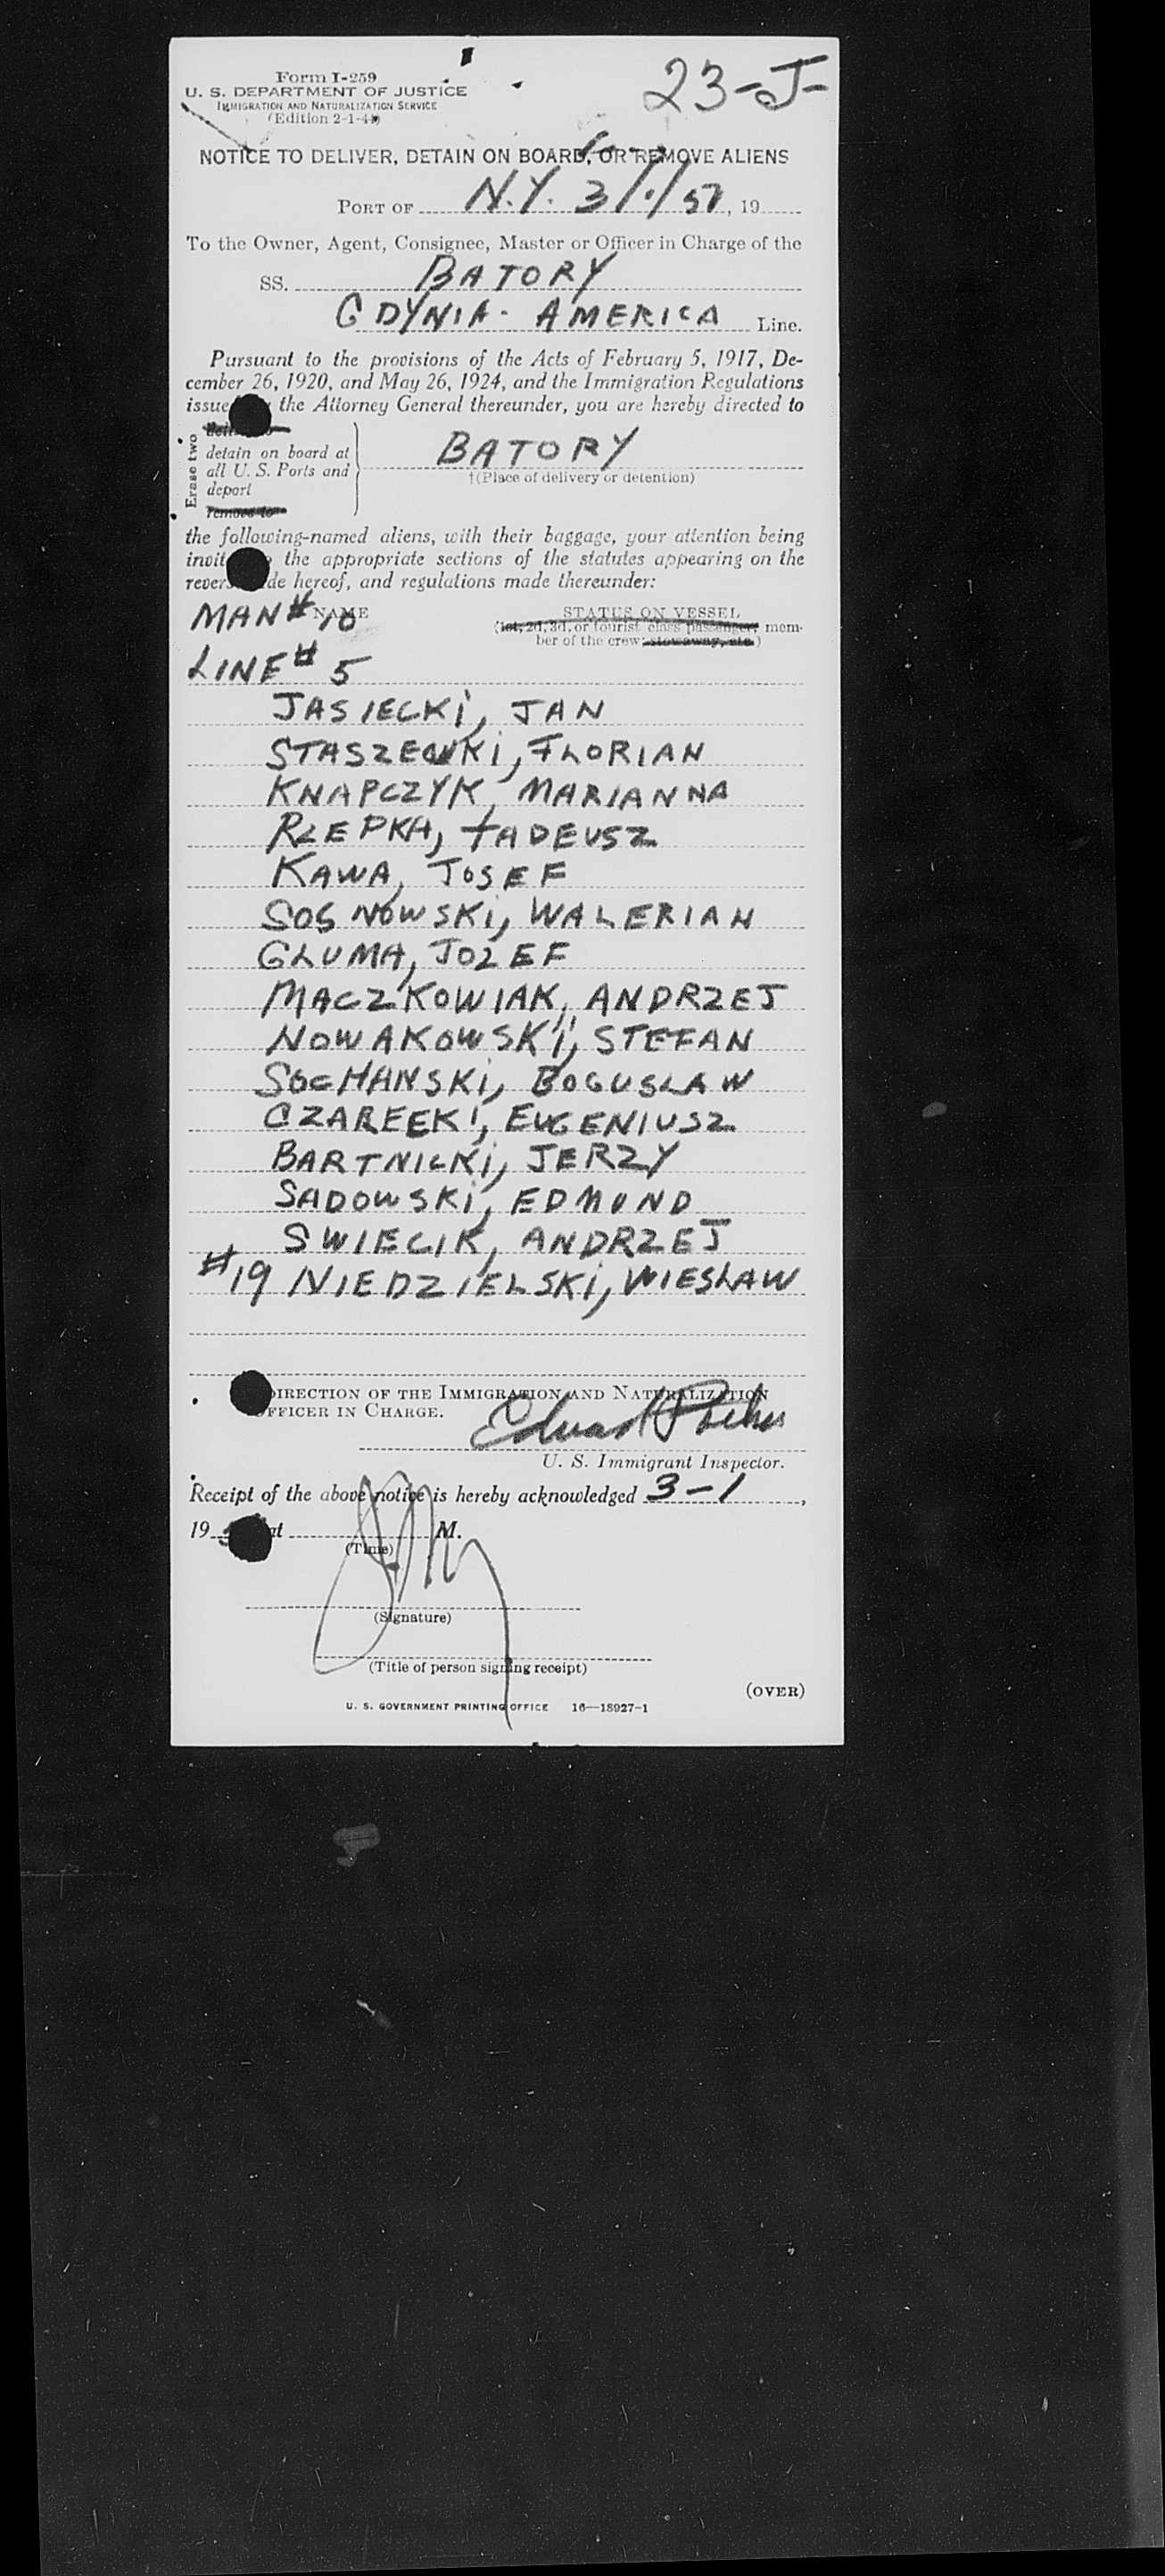 Form I-259
23-J-
U. S. DEPARTMENT OF JUSTICE
IMMIGRATION AND NATURALIZATION SERVICE
(Edition 2-1-41)
NOTICE TO DELIVER, DETAIN ON BOARD, OR REMOVE ALIENS
PORT OF N.Y. 3/1/51, 19
To the Owner, Agent, Consignee, Master or Officer in Charge of the
SS. BATORY
GDYNIA-AMERICA Line.
Pursuant to the provisions of the Acts of February 5, 1917, De-
cember 26, 1920, and May 26, 1924, and the Immigration Regulations
issue the Attorney General thereunder, you are hereby directed to
Erase two
detain on board at
all U. S. Ports and
deport
remove to
BATORY
†(Place of delivery or detention)
the following-named aliens, with their baggage, your attention being
invit the appropriate sections of the statutes appearing on the
revers de hereof, and regulations made thereunder:
MAN # 10 NAME STATUS ON VESSEL
(1st, 2d, 3d, or tourist class passenger; mem-
ber of the crew; stowaway, etc.)
LINE # 5
JASIECKI, JAN
FLORIAN
KNAPCZYK, MARIANNA
RZEPKA, TADEUSZ
KAWA, JOSEF
SOSNOWSKI, WALERIAN
GLUMA, JOZEF
MACZKOWIAK, ANDRZEJ
NOWAKOWSKI, STEFAN
SOCHANSKI, BOGUSLAW
EUGENIUSZ
BARTNICKI, JERZY
SADOWSKI, EDMUND
SWIECIK, ANDRZEJ
#19 NIEDZIELSKI, WIESLAW
DIRECTION OF THE IMMIGRATION AND NATURALIZATION
OFFICER IN CHARGE.
U. S. Immigrant Inspector.
Receipt of the above notice is hereby acknowledged 3-1,
19 at M.
(Time)
(Signature)
(Title of person signing receipt)
(OVER)
U. S. GOVERNMENT PRINTING OFFICE 16—18927-1